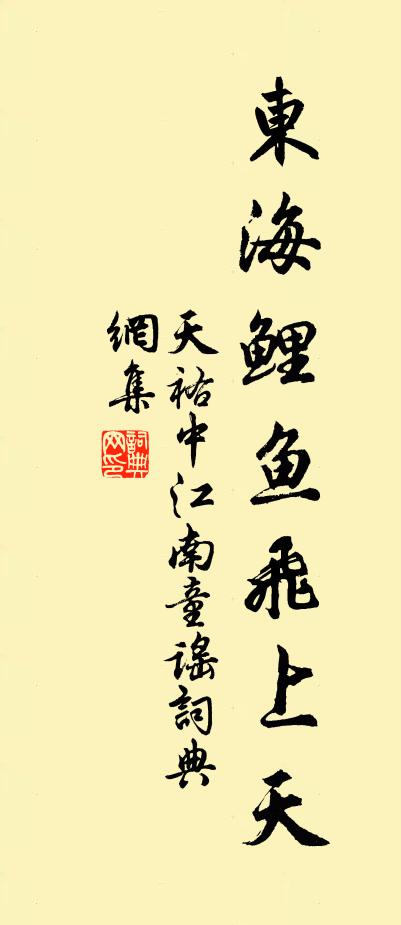 東海鯉魚飛上天
天祐中江南童謠詞典
網集
詞典
网印